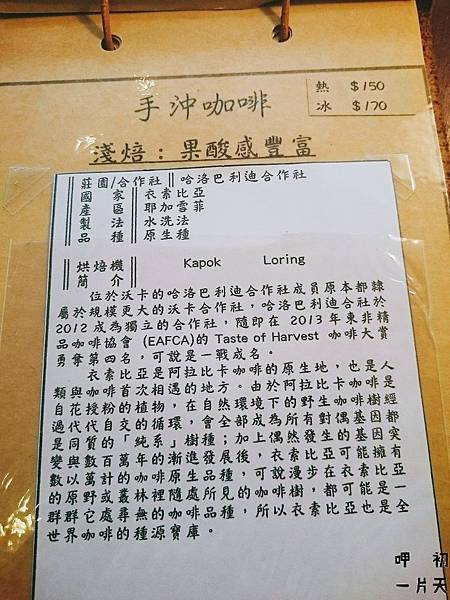 手沖咖啡
熱 $150
冰 $170
淺焙：果酸感豐富
莊園/合作社 哈洛巴利迪合作社
國家 衣索比亞
產區 耶加雪菲
製法 水洗法
品種 原生種
烘焙機 Kapok Loring
簡介
位於沃卡的哈洛巴利迪合作社成員原本都隸
屬於規模更大的沃卡合作社，哈洛巴利迪合作社於
2012 成為獨立的合作社，隨即在 2013 年東非精
品咖啡協會 (EAFCA)的 Taste of Harvest 咖啡大賞
勇奪第四名，可說是一戰成名。
衣索比亞是阿拉比卡咖啡的原生地，也是人
類與咖啡首次相遇的地方。由於阿拉比卡咖啡是
自花授粉的植物，在自然環境下的野生咖啡樹經
過代代自交的循環，會全部成為所有對偶基因都
是同質的「純系」樹種；加上偶然發生的基因突
變與數百萬年的漸進發展後，衣索比亞可能擁有
數以萬計的咖啡原生品種，可說漫步在衣索比亞
的原野或叢林裡隨處所見的咖啡樹，都可能是一
群群它處尋無的咖啡品種，所以衣索比亞也是全
世界咖啡的種源寶庫。
呷 初
一片天